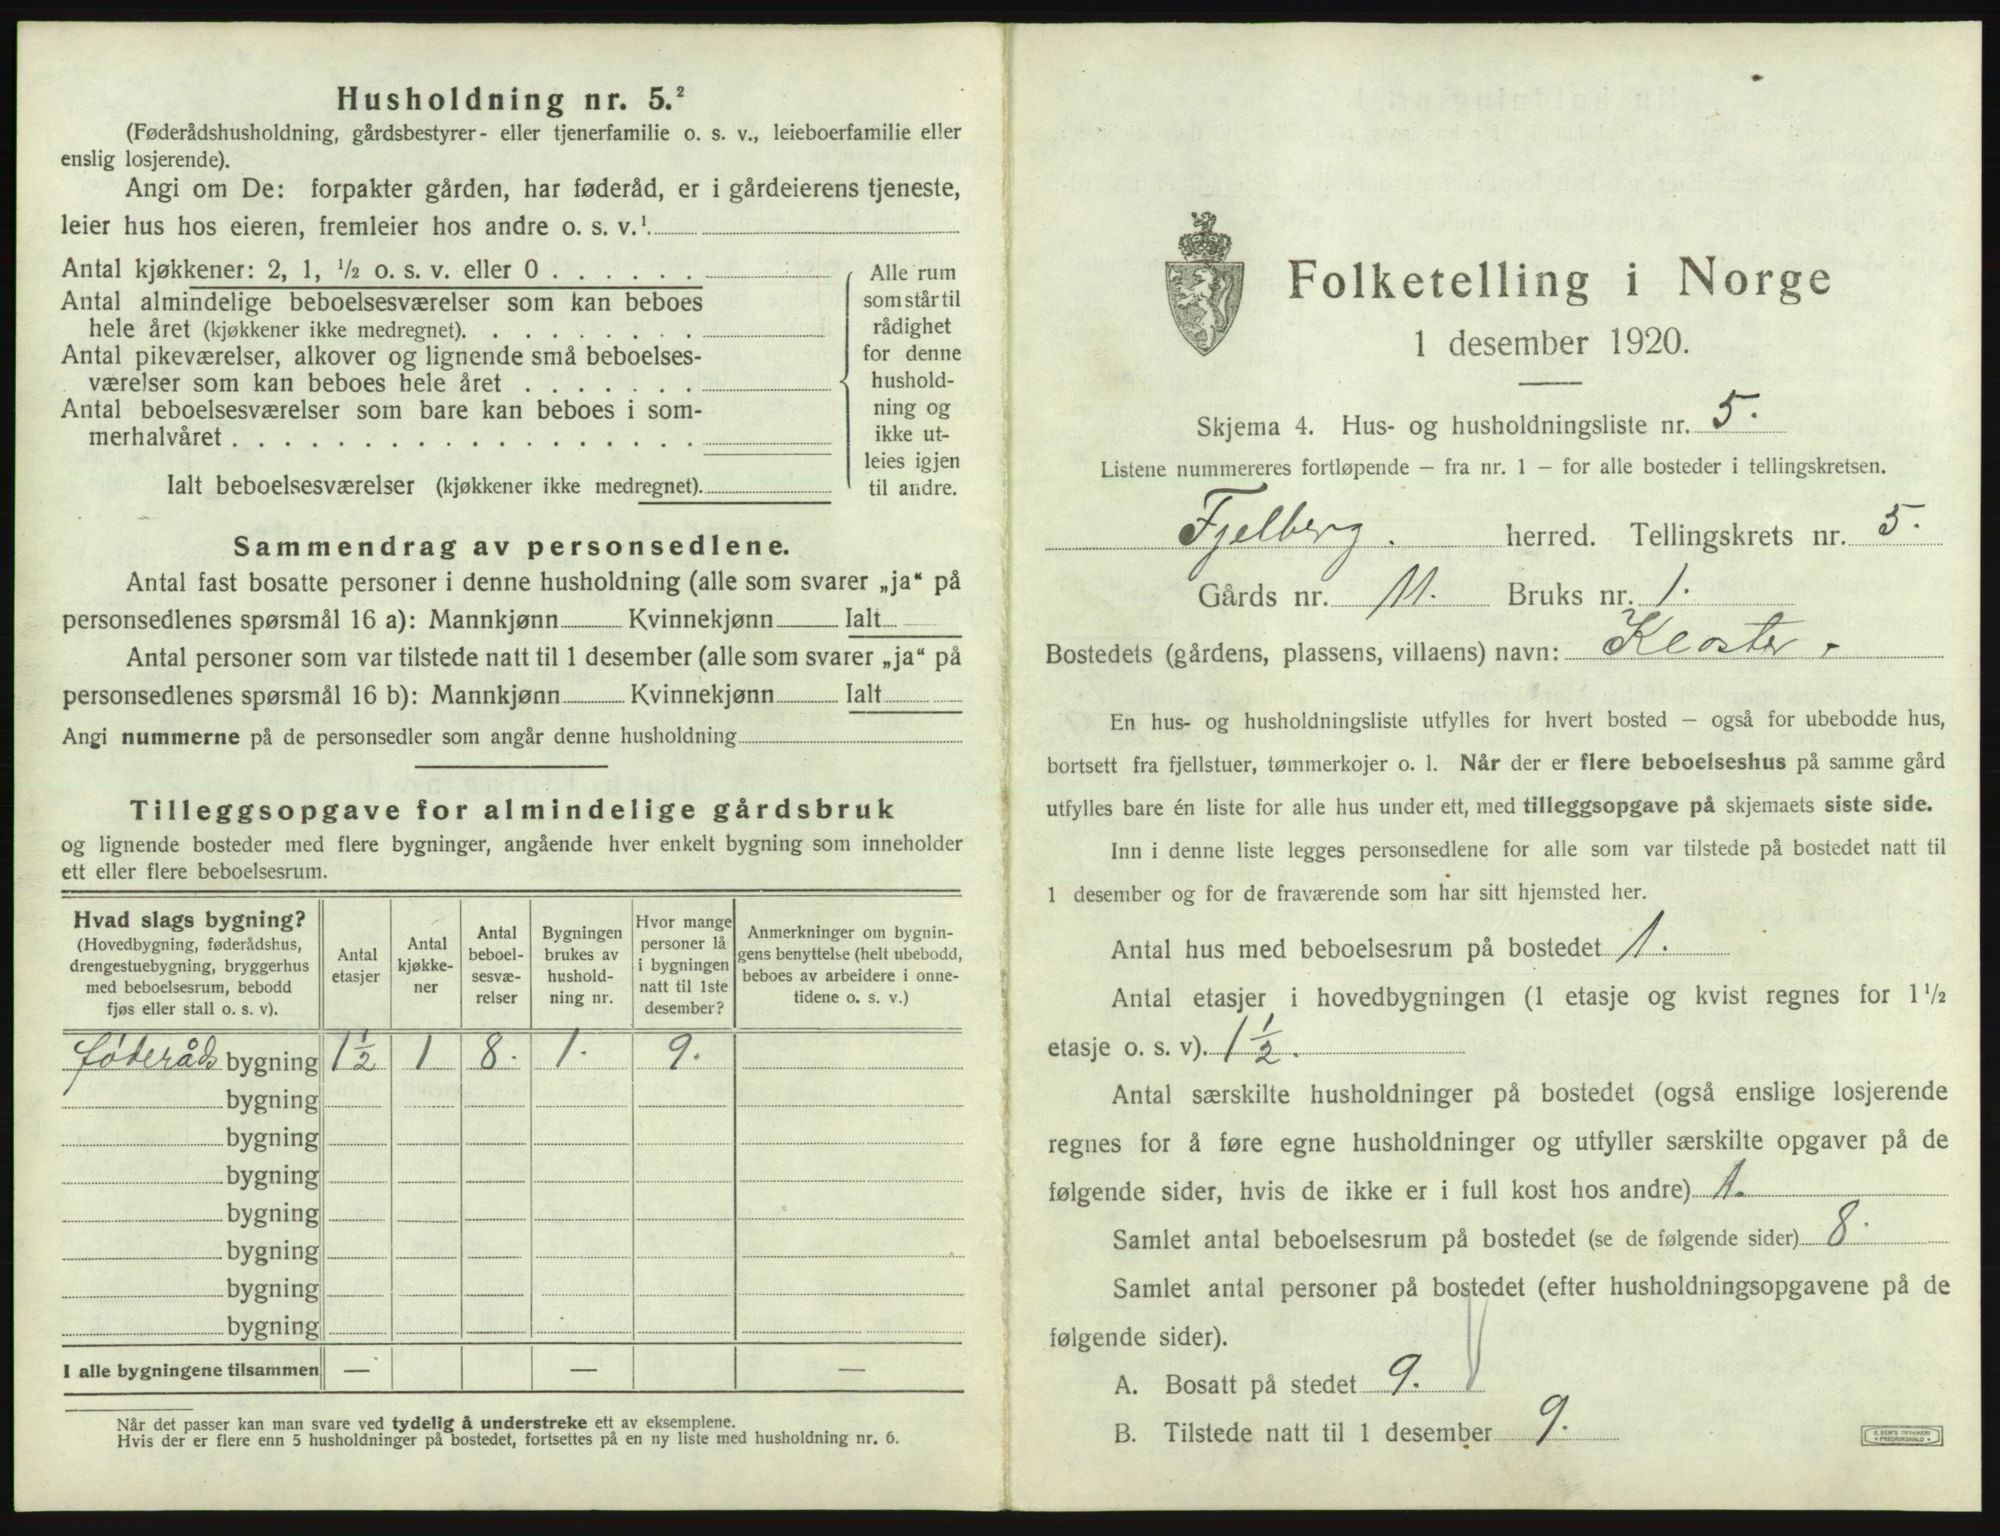 Husholdning nr. 5.²
(Føderådshusholdning, gårdsbestyrer- eller tjenerfamilie o. s. v., leieboerfamilie eller
enslig losjerende).
Angi om De: forpakter gården, har føderåd, er i gårdeierens tjeneste,
leier hus hos eieren, fremleier hos andre o. s. v.¹
Antal kjøkkener: 2, 1, ½ o. s. v. eller 0 . . . . . .
Antal almindelige beboelsesværelser som kan beboes
hele året (kjøkkener ikke medregnet). . . . . . . . .
Antal pikeværelser, alkover og lignende små beboelses-
værelser som kan beboes hele året . . . . . . .
Antal beboelsesværelser som bare kan beboes i som-
merhalvåret . . . . . . . . . . . . . . . . . .
Ialt beboelsesværelser (kjøkkener ikke medregnet).
Alle rum
som står til
rådighet
for denne
hushold-
ning og
ikke ut-
leies igjen
til andre.
Sammendrag av personsedlene.
Antal fast bosatte personer i denne husholdning (alle som svarer „ja“ på
personsedlenes spørsmål 16 a): Mannkjønn Kvinnekjønn Ialt
Antal personer som var tilstede natt til 1 desember (alle som svarer „ja“ på
personsedlenes spørsmål 16 b): Mannkjønn Kvinnekjønn Ialt
Angi nummerne på de personsedler som angår denne husholdning
Tilleggsopgave for almindelige gårdsbruk
og lignende bosteder med flere bygninger, angående hver enkelt bygning som inneholder
ett eller flere beboelsesrum.
Hvad slags bygning?
(Hovedbygning, føderådshus,
drengestuebygning, bryggerhus
med beboelsesrum, bebodd
fjøs eller stall o. s. v).
Antal
etasjer
Antal
kjøkke-
ner
Antal
beboel-
sesvæ-
relser
Bygningen
brukes av
hushold-
ning nr.
Hvor mange
personer lå
i bygningen
natt til 1ste
desember?
Anmerkninger om bygnin-
gens benyttelse (helt ubebodd,
beboes av arbeidere i onne-
tidene o. s. v.)
føderåds bygning 1½ 1 8. 1. 9.
bygning
bygning
bygning
bygning
bygning
bygning
bygning
I alle bygningene tilsammen — — —
Når det passer kan man svare ved tydelig å understreke ett av eksemplene.
Hvis der er flere enn 5 husholdninger på bostedet, fortsettes på en ny liste med husholdning nr. 6.
Folketelling i Norge
1 desember 1920.
Skjema 4. Hus- og husholdningsliste nr. 5.
Listene nummereres fortløpende — fra nr. 1 — for alle bosteder i tellingskretsen.
Fjelberg. herred. Tellingskrets nr. 5.
Gårds nr. 11. Bruks nr. 1.
Bostedets (gårdens, plassens, villaens) navn: Kloster.
En hus- og husholdningsliste utfylles for hvert bosted — også for ubebodde hus,
bortsett fra fjellstuer, tømmerkojer o. l. Når der er flere beboelseshus på samme gård
utfylles bare én liste for alle hus under ett, med tilleggsopgave på skjemaets siste side.
Inn i denne liste legges personsedlene for alle som var tilstede på bostedet natt til
1 desember og for de fraværende som har sitt hjemsted her.
Antal hus med beboelsesrum på bostedet 1.
Antal etasjer i hovedbygningen (1 etasje og kvist regnes for 1½
etasje o. s. v). 1½.
Antal særskilte husholdninger på bostedet (også enslige losjerende
regnes for å føre egne husholdninger og utfyller særskilte opgaver på de
følgende sider, hvis de ikke er i full kost hos andre) 1.
Samlet antal beboelsesrum på bostedet (se de følgende sider) 8.
Samlet antal personer på bostedet (efter husholdningsopgavene på de
følgende sider).
A. Bosatt på stedet 9.
B. Tilstede natt til 1 desember 9.
E. SEM'S TRYKKERI
FREDRIKSHALD